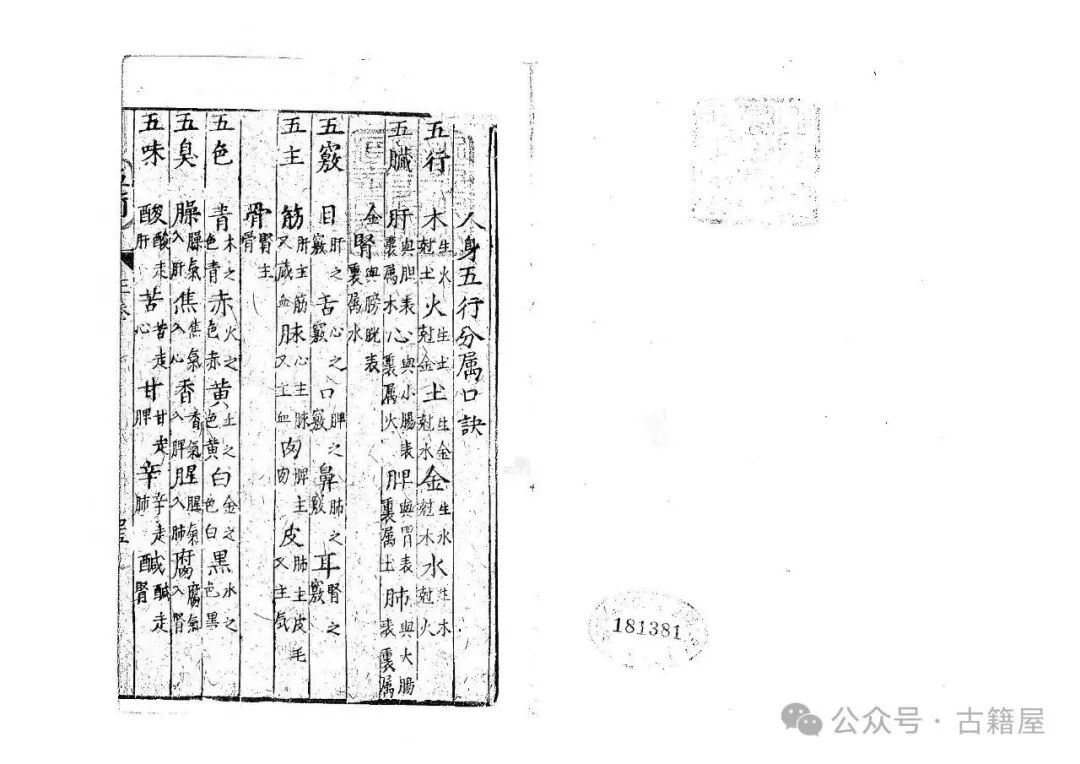 人身五行分属口訣
五行 木生火尅土火生土尅金土生金尅水金生水尅木水生木尅火
五臓 肝與胆表裏属木心與小腸表裏属火脾與胃表裏属土肺與大腸表裏属
金腎與膀胱表裏属水
五竅 目肝之竅舌心之竅口脾之竅鼻肺之竅耳腎之竅
五主 筋肝主筋又藏血脉心主脉又主血肉脾主肉皮肺主皮毛又主氣
骨腎主骨
五色 青木之色青赤火之色赤黄土之色黄白金之色白黑水之色黑
五臭 臊臊氣入肝焦焦氣入心香香氣入脾腥腥氣入肺腐腐氣入腎
五味 酸酸走肝苦苦走心甘甘走脾辛辛走肺鹹鹹走腎
181381
公众号·古籍屋